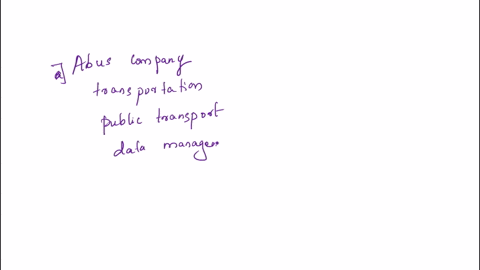 a] Abus company
transportation
public transport
data manage